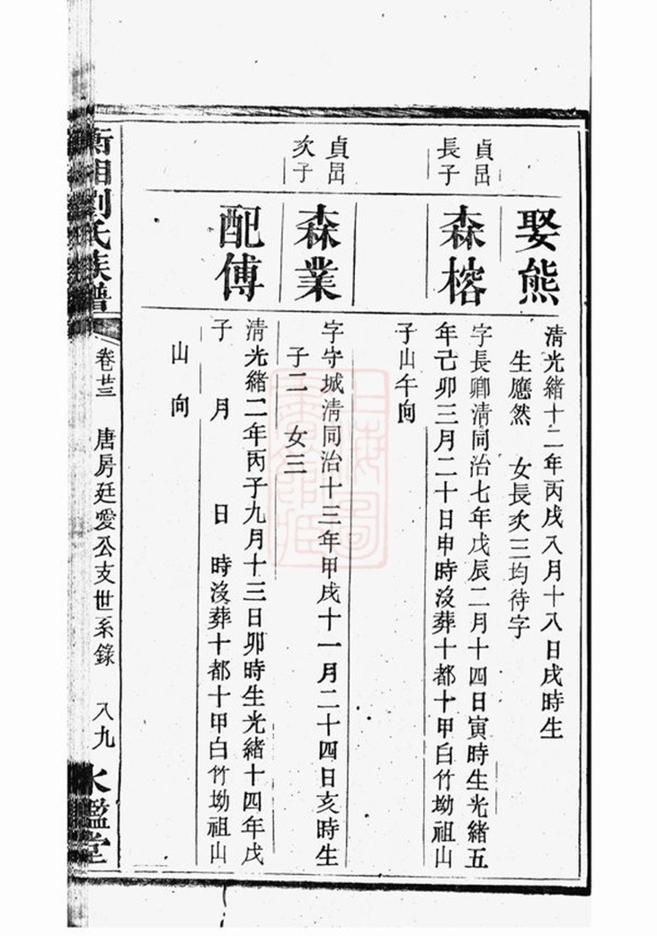 娶熊
清光緒十二年丙戌八月十八日戌時生
生應然 女長次三均待字
貞嵒
長子
森榕
字長卿清同治七年戊辰二月十四日寅時生光緒五
年己卯三月二十日申時沒葬十都十甲白竹坳祖山
子山午向
貞嵒
次子
森業
字守城清同治十三年甲戌十一月二十四日亥時生
子二 女三
配傅
清光緒二年丙子九月十三日卯時生光緒十四年戊
子 月 日 時沒葬十都十甲白竹坳祖山
山向
衡湘劉氏族譜
卷廿三 唐房廷愛公支世系錄 八九
水鑑堂